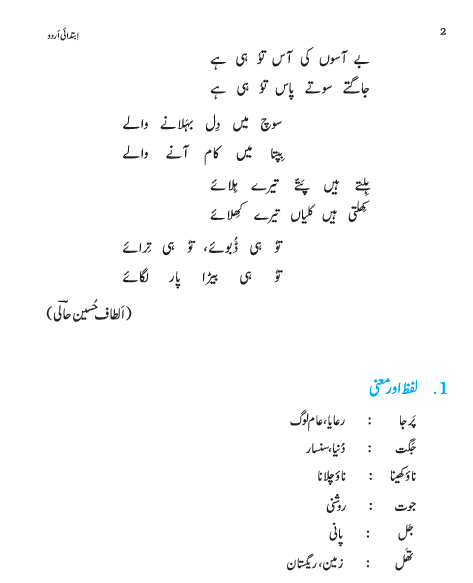 اِبتدائی اُردو 2
بے آسوں کی آس تُو ہی ہے
جاگتے سوتے پاس تُو ہی ہے
سوچ میں دِل بہلانے والے
بِپتا میں کام آنے والے
ہِلتے ہیں پتّے تیرے ہِلائے
کِھلتی ہیں کلیاں تیرے کِھلائے
تُو ہی ڈُبوئے، تُو ہی تِرائے
تُو ہی بیڑا پار لگائے
(الطاف حُسین حالؔی)
1. لفظ اور معنی
پَرجا : رعایا، عام لوگ
جَگت : دُنیا، سنسار
ناؤ کھینا : ناؤ چلانا
جوت : روشنی
جَل : پانی
تَھل : زمین، ریگستان